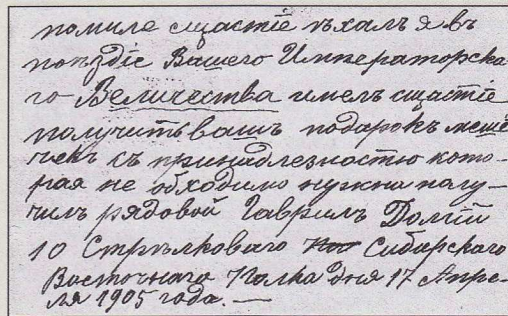 помиле сщастіе ѣхалъ я въ
поѣздіе Вашего Императорска-
го Величества имелъ сщастіе
получить вашъ подарокъ меше
чекъ съ принадлезностью кото-
рая не обходимо нужна полу-
чилъ рядовой Гаврилъ Долгій
10 Стрѣлковаго Сибарскаго
Восточнаго Полка дня 17 Апре-
ля 1905 года. —